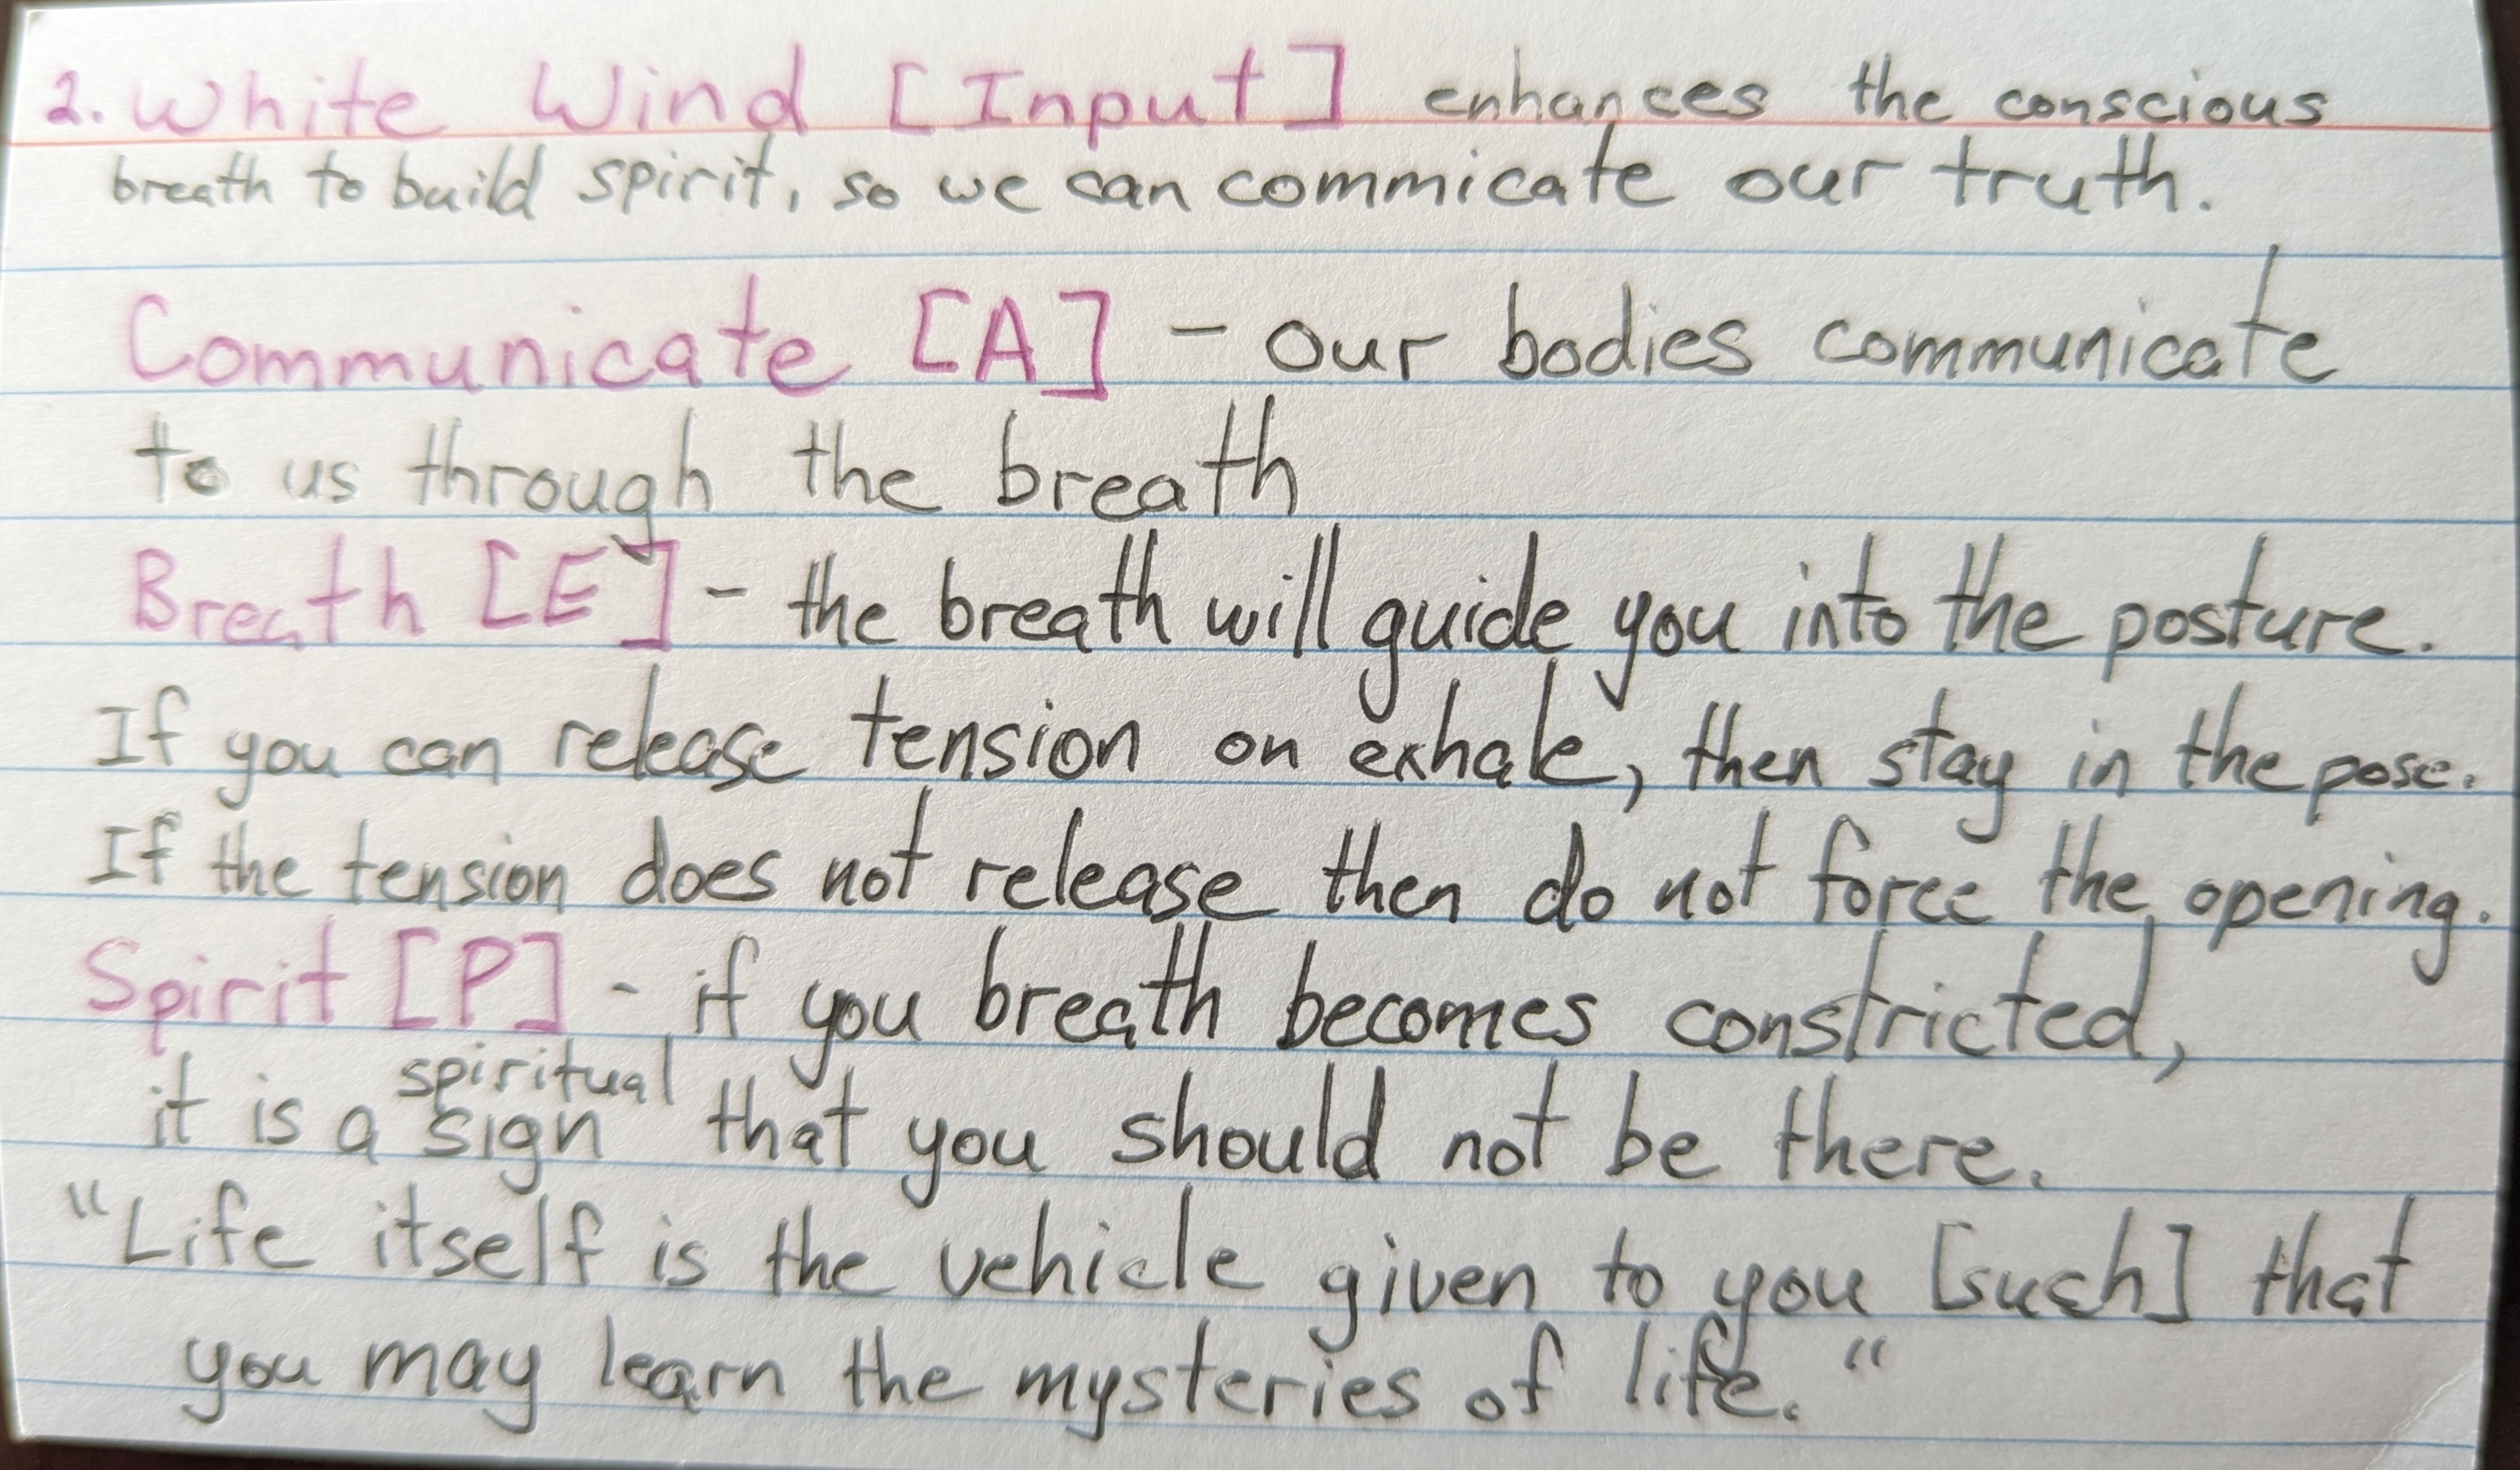 2. White Wind [Input] enhances the conscious
breath to build spirit, so we can commicate our truth.
Communicate [A] - our bodies communicate
to us through the breath
Breath [E] - the breath will guide you into the posture.
If you can release tension on exhale, then stay in the pose.
If the tension does not release then do not force the opening.
Spirit [P] - if you breath becomes constricted,
it is a spiritual sign that you should not be there.
"Life itself is the vehicle given to you [such] that
you may learn the mysteries of life."